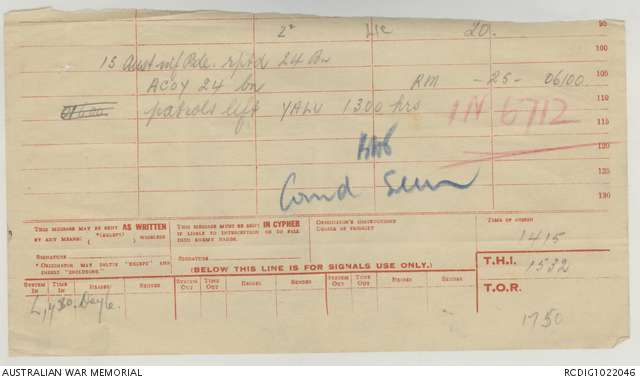 2" LIC 20. 95
100
15 Aust Inf Bde. rptd 24 Bn
105
A COY 24 bn RM - 25 - 06100
110
patrols left YALU 1300 hrs IN 6712
115
120
125
130
THIS MESSAGE MAY BE SENT AS WRITTEN BY ANY MEANS ("(EXCEPT) ) WIRELESS
THIS MESSAGE MUST BE SENT IN CYPHER IF LIABLE TO INTERCEPTION OR TO FALL INTO ENEMY HANDS.
ORIGINATOR'S INSTRUCTIONS DEGREE OF PRIORITY
TIME OF ORIGIN
1415
SIGNATURE
SIGNATURE
* ORIGINATOR MAY DELETE "EXCEPT" AND INSERT "INCLUDING."
(BELOW THIS LINE IS FOR SIGNALS USE ONLY.)
T.H.I. 1532
SYSTEM IN TIME IN READER SENDER SYSTEM OUT TIME OUT READER SENDER SYSTEM OUT TIME OUT READER SENDER
T.O.R.
1750
AUSTRALIAN WAR MEMORIAL RCDIG1022046